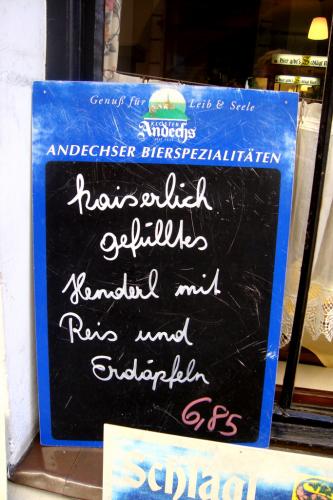 Genuß für Leib & Seele
KLOSTER
Andechs
ANDECHSER BIERSPEZIALITÄTEN
kaiserlich
gefülltes
Henderl mit
Reis und
Erdäpfeln
6,85
Schlägl